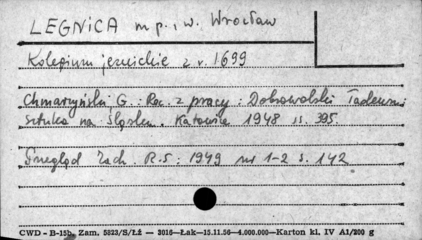 LEGNICA m p. i w. Wrocław
Kolegium jezuickie z r. 1699
Chmarzyński G. : Rec. z pracy : Dobrowolski Tadeusz
Sztuka na Śląsku. Katowice 1948 s. 395
Przegląd Zach. R.5 : 1949 nr 1-2 s. 142
CWD - B-15b, Zam. 5823/S/Łż — 3016—Łak—15.11.56—4.000.000—Karton kl. IV A1/200 g